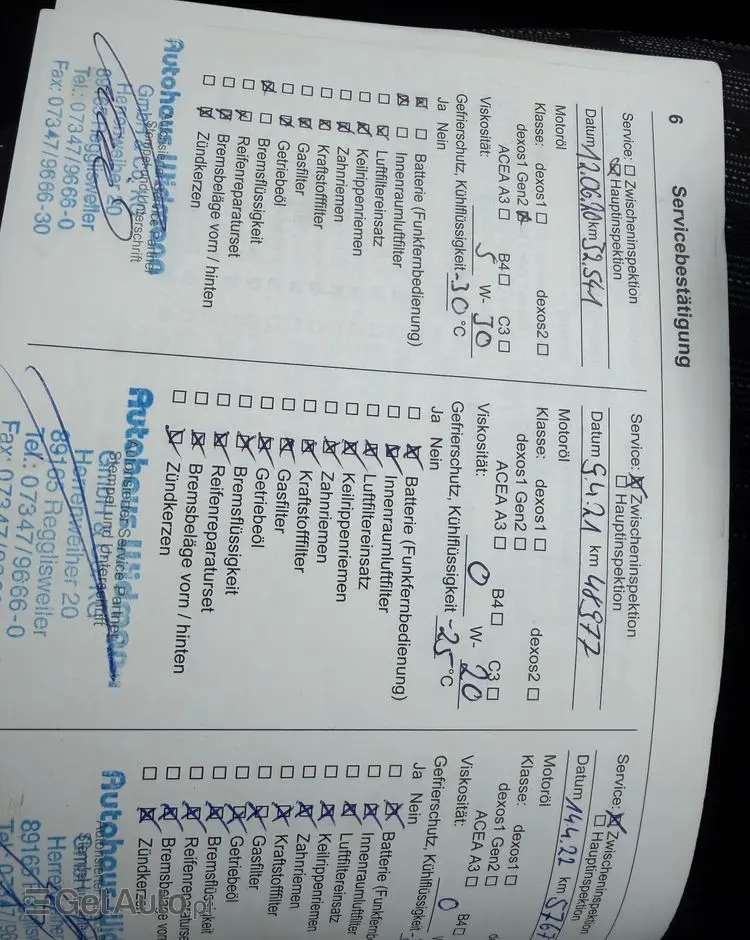 6
Servicebestätigung
Service: ☐ Zwischeninspektion
☒ Hauptinspektion
Datum km 32.541
Motoröl
Klasse: dexos1 ☐ dexos2 ☐
dexos1 Gen2 ☒
ACEA A3 ☐ B4 ☐ C3 ☐
Viskosität: 5 W- 30
Gefrierschutz, Kühlflüssigkeit -30 °C
Ja Nein
☒ ☐ Batterie (Funkfernbedienung)
☒ ☐ Innenraumluftfilter
☐ ☒ Luftfiltereinsatz
☐ ☒ Keilrippenriemen
☐ ☒ Zahnriemen
☐ ☒ Kraftstofffilter
☐ ☒ Gasfilter
☐ ☒ Getriebeöl
☒ ☐ Bremsflüssigkeit
☐ ☒ Reifenreparaturset
☐ ☒ Bremsbeläge vorn / hinten
☐ ☒ Zündkerzen
Autohaus
GmbH & Co. KG
Stempel und Unterschrift
Herrenweiher 20
89165 Regglisweiler
Tel.: 07347/9666-0
Fax: 07347/9666-30
Service: ☒ Zwischeninspektion
☐ Hauptinspektion
Datum 9.4.21 km 48977
Motoröl
Klasse: dexos1 ☐ dexos2 ☐
dexos1 Gen2 ☐
ACEA A3 ☐ B4 ☐ C3 ☐
Viskosität: 0 W- 20
Gefrierschutz, Kühlflüssigkeit -25 °C
Ja Nein
☐ ☒ Batterie (Funkfernbedienung)
☐ ☒ Innenraumluftfilter
☐ ☒ Luftfiltereinsatz
☐ ☒ Keilrippenriemen
☐ ☒ Zahnriemen
☐ ☒ Kraftstofffilter
☐ ☒ Gasfilter
☐ ☒ Getriebeöl
☐ ☒ Bremsflüssigkeit
☐ ☒ Reifenreparaturset
☐ ☒ Bremsbeläge vorn / hinten
☐ ☒ Zündkerzen
Autohaus
Autorisierter Service Partner
Stempel und Unterschrift
Herrenweiher 20
89165 Regglisweiler
Tel.: 07347/9666-0
Fax: 07347/
Service: ☒ Zwischeninspektion
☐ Hauptinspektion
Datum km 5767
Motoröl
Klasse: dexos1 ☐
dexos1 Gen2 ☐
ACEA A3 ☐ B4 ☐
Viskosität: 0
Gefrierschutz, Kühlflüssigkeit
Ja Nein
☐ ☒ Batterie (Funkfernb
☐ ☒ Innenraumluftfilter
☐ ☒ Luftfiltereinsatz
☐ ☒ Keilrippenriemen
☐ ☒ Zahnriemen
☐ ☒ Kraftstofffilter
☐ ☒ Gasfilter
☐ ☒ Getriebeöl
☐ ☒ Bremsflüssigkeit
☐ ☒ Reifenreparaturse
☐ ☒ Bremsbeläge vorn
☐ ☒ Zündkerz
Autohaus
GetAuto